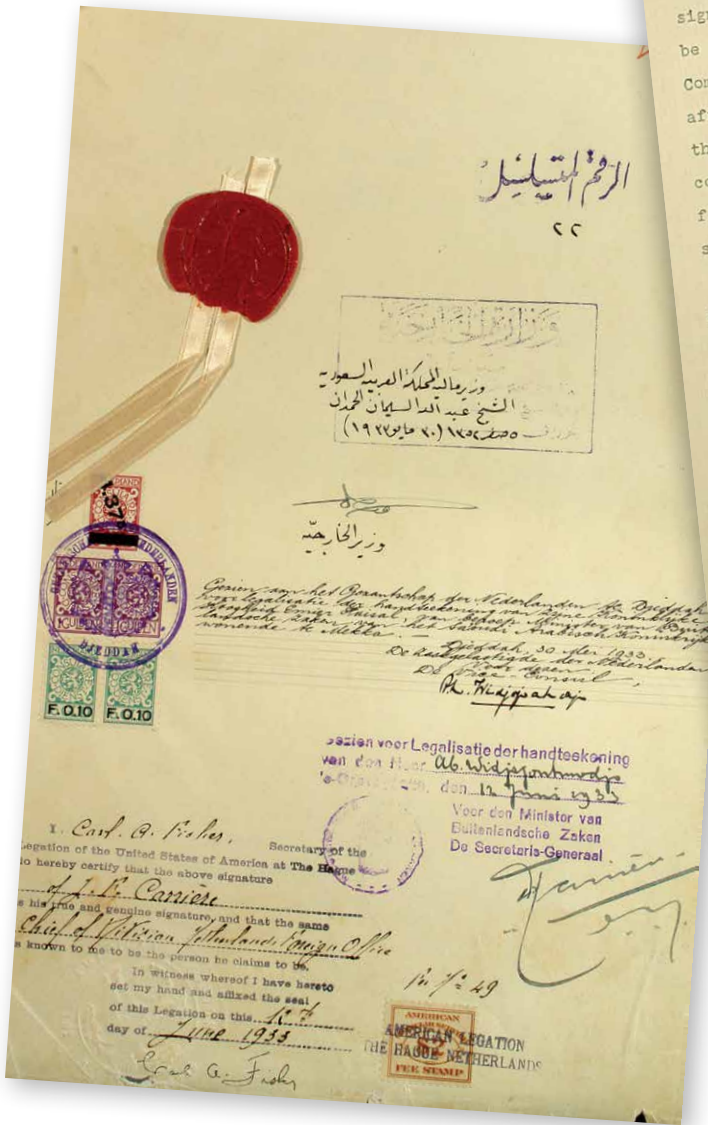 sign
be
Com
af
th
co
f
s
الرقم المتسلسل
٢٢
وزارة الخارجية
وزير مالية المملكة العربية السعودية
الشيخ عبد الله السليمان الحمدان
٥ صفر ١٣٥٢ (٣٠ مايو ١٩٣٣)
وزير الخارجيّة
DJEDDAH
GULDEN GULDEN
F.0.10 F.0.10
Gezien aan het Gezantschap der Nederlanden te Djeddah
voor legalisatie der handteekening van Zijne Koninklijke
Hoogheid Emir Faisal, Minister van Buiten-
landsche Zaken van het Saoedi Arabisch Koninkrijk
wonende te Mekka. —
Djeddah, 30 Mei 1933
De Zaakgelastigde der Nederlanden
Voor dezen
De Vice-Consul,
Gezien voor Legalisatie der handteekening
van den Heer
den 12 Juni 1933
Voor den Minister van
Buitenlandsche Zaken
De Secretaris-Generaal
I. Carl. A. Fisher, Secretary of the
Legation of the United States of America at The Hague
do hereby certify that the above signature
of Carrière
is his true and genuine signature, and that the same
Chief of Division Netherlands Foreign Office
is known to me to be the person he claims to be.
In witness whereof I have hereto
set my hand and affixed the seal
of this Legation on this 12th
day of June 1933
Carl A. Fisher
49
AMERICAN
FEE STAMP
AMERICAN LEGATION
THE HAGUE NETHERLANDS